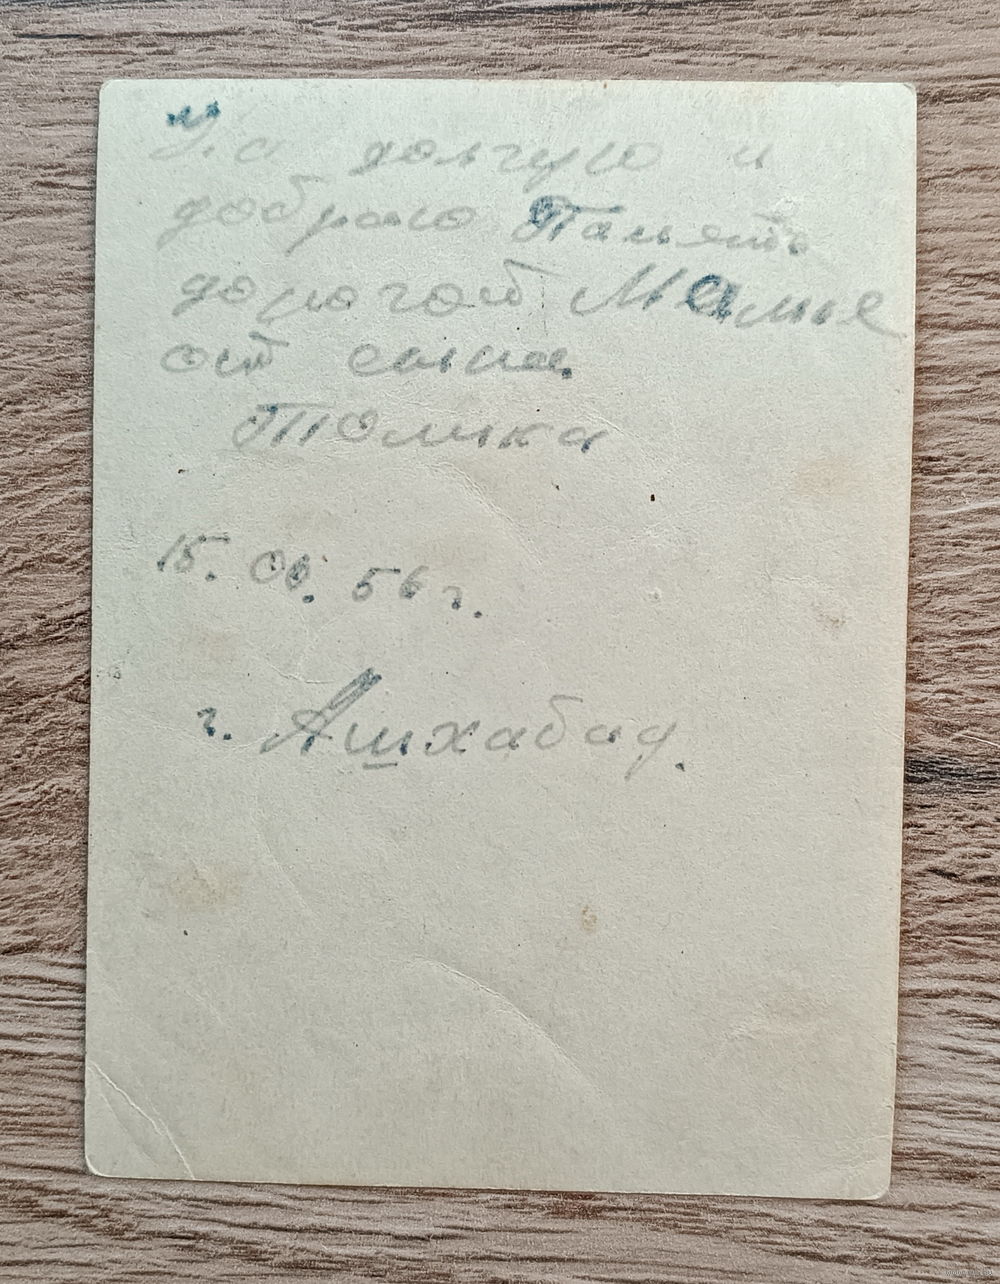 На долгую и
добрую Память
дорогой Маме
от сына
Толика
15. 06. 56 г.
г. Ашхабад.